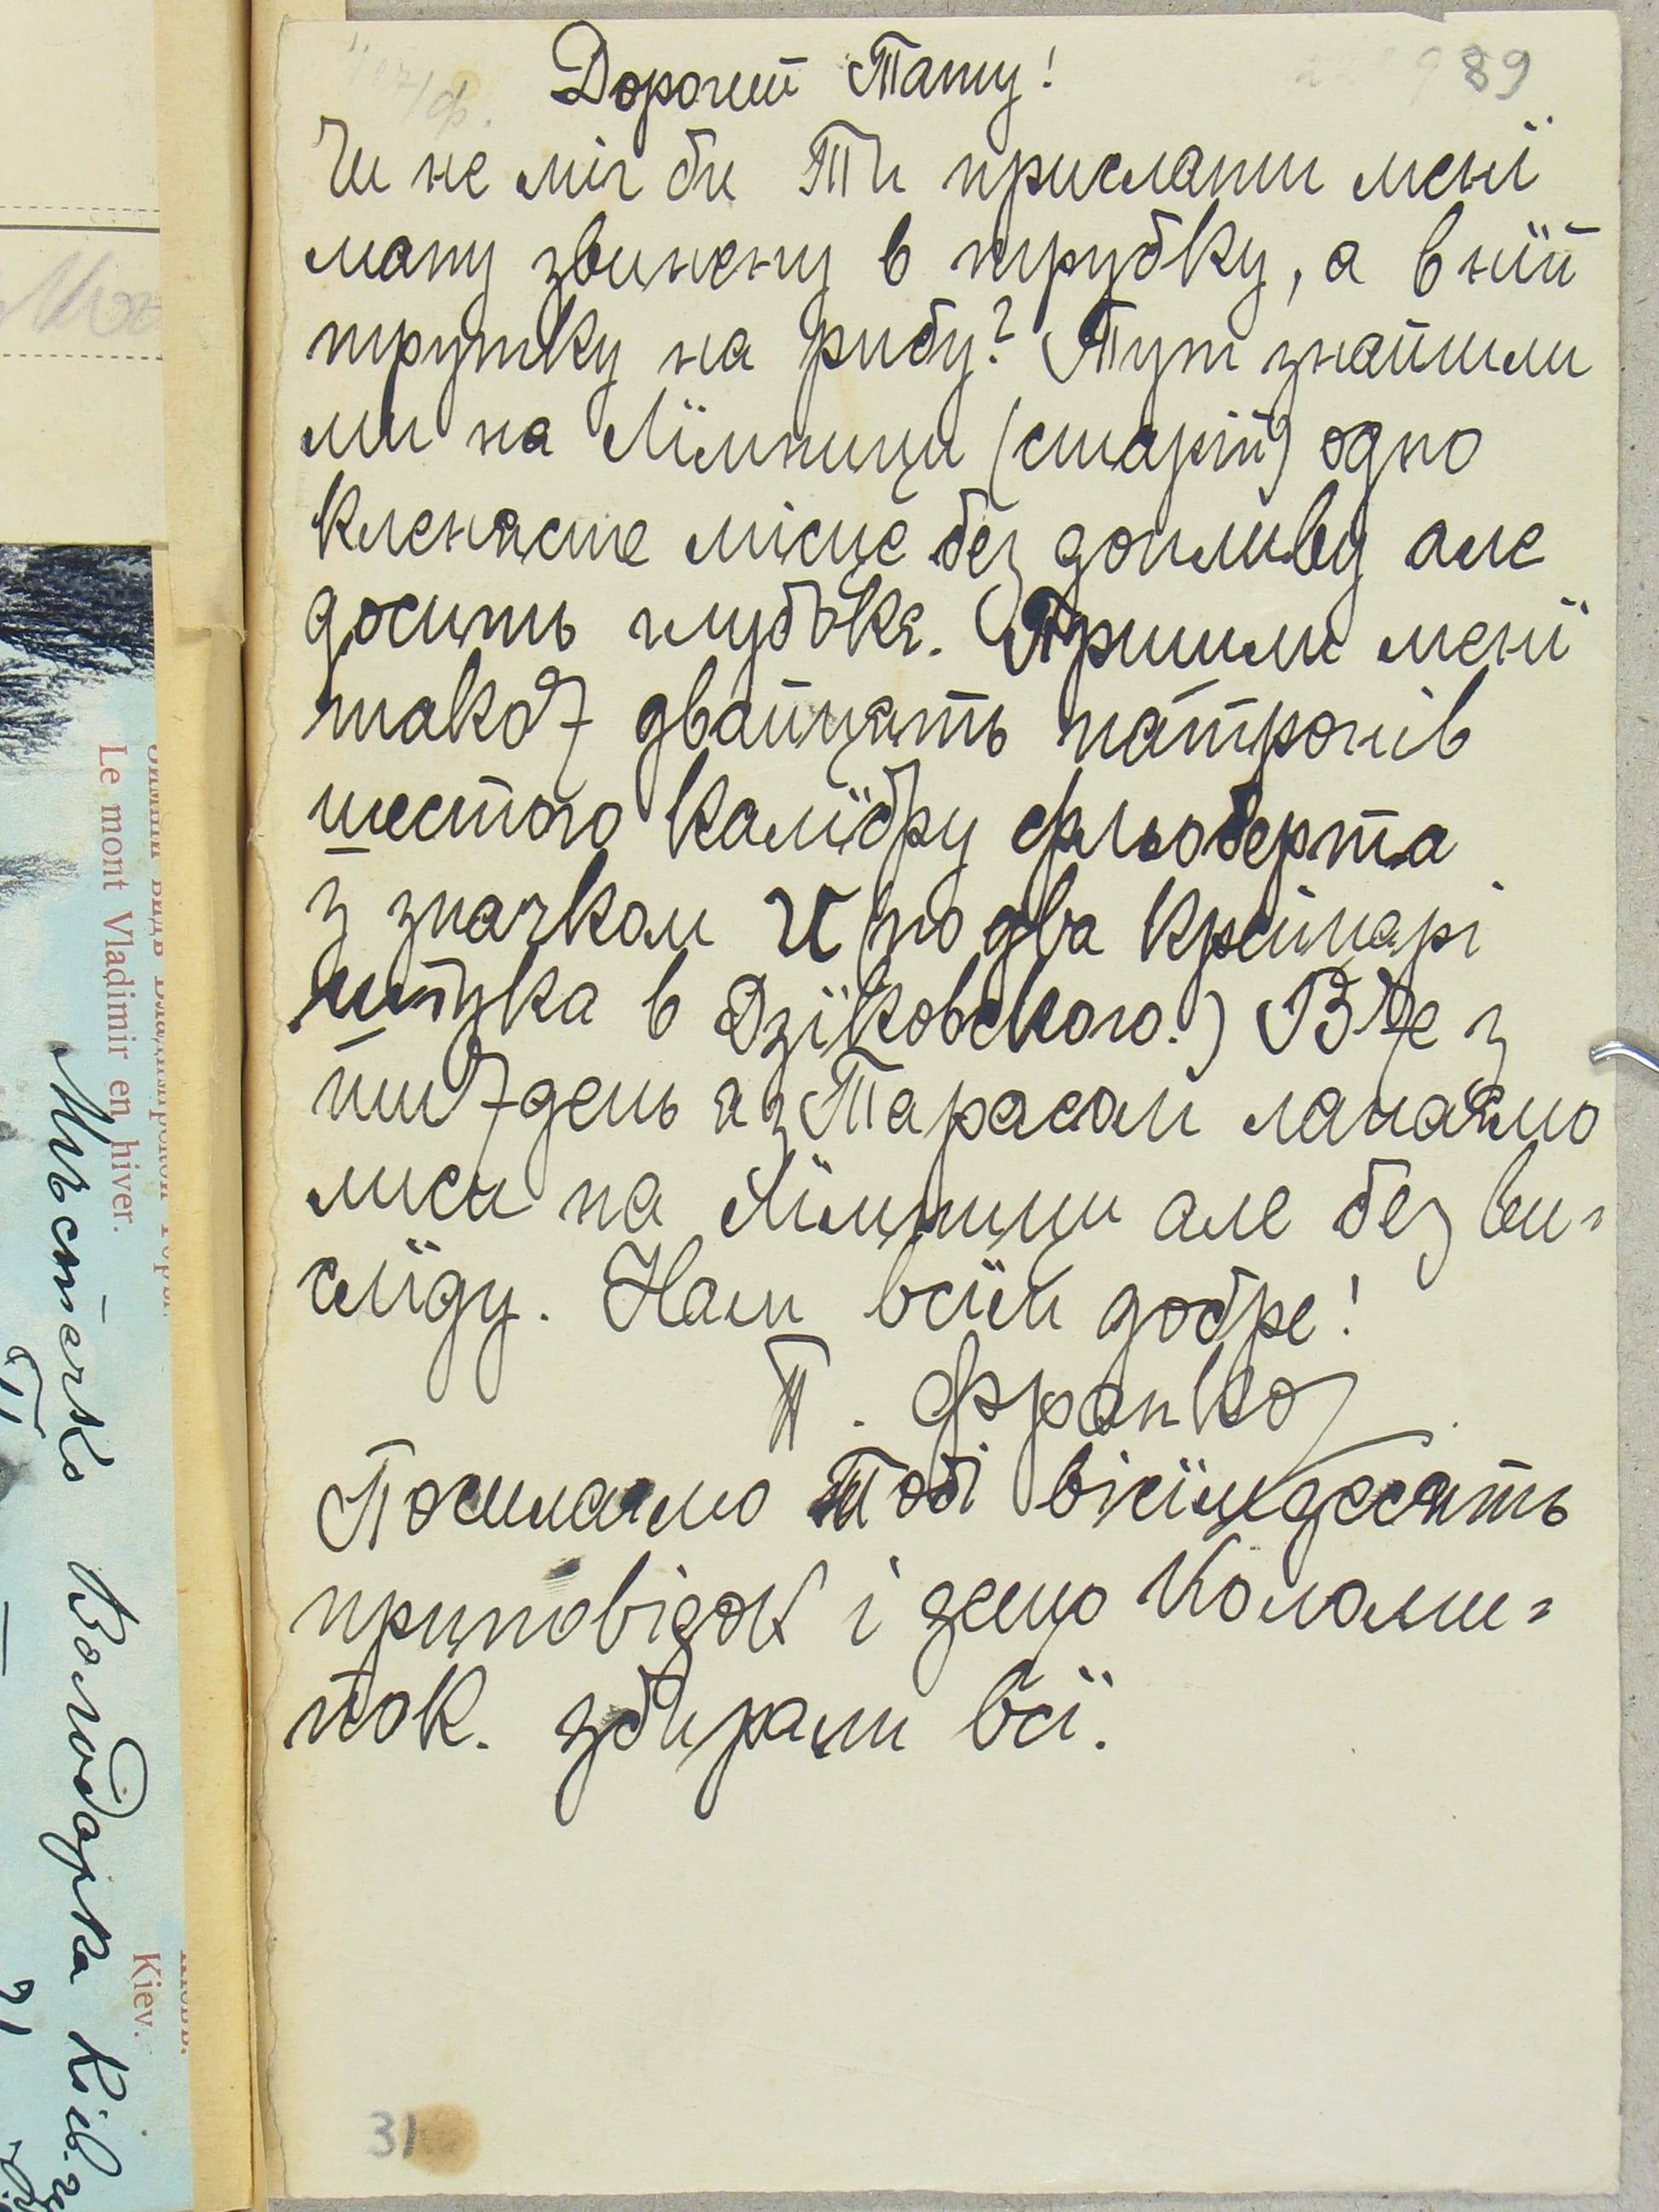 Дорогий Тату!
89
Чи не міг би Ти прислати менї
мапу звинену в трубку, а в нїй
трутку на рибу? Тут знайшли
ми на Лїмници (старій) одно
кленясте місце без допливу але
досить глубоке. Пришли менї
також двайцять патронів
шестого калїбру фльоберта
з значком U (по два крейцарі
штука в Дзїковского.) Вже з
тиждень я з Тарасом лагаємо
лиси на Лїмници але без ви-
слїду. Нам всїм добре!
П. Франко
Посилаємо Тобі вісїмдесять
приповідок і дещо Коломи-
йок. збирали всї.
31
Le mont Vladimir en hiver.
Kiev.
Містечко Володарка Київ.